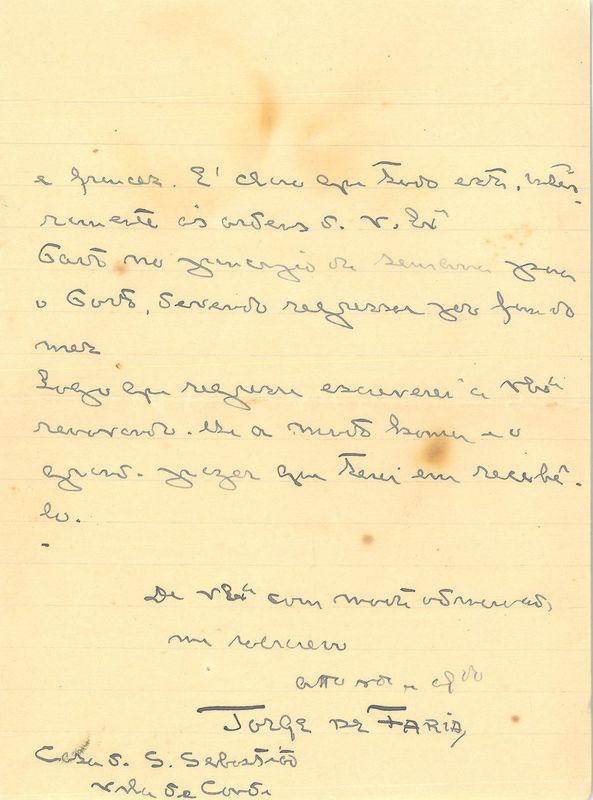 e francez. E' claro que tudo está, intei-
ramente ás ordens d. V. Exª
Parto no principio da semana para
o Porto, devendo regressar por fins do
mez
Logo que regresse escreverei a VExª
renovando-lhe a muita honra e o
grande prazer que terei em recebê-
lo.
-
De VExª com muita
me subscrevo
atto
JORGE DE FARIA
Casa d. S. Sebastião
Vila de Conde